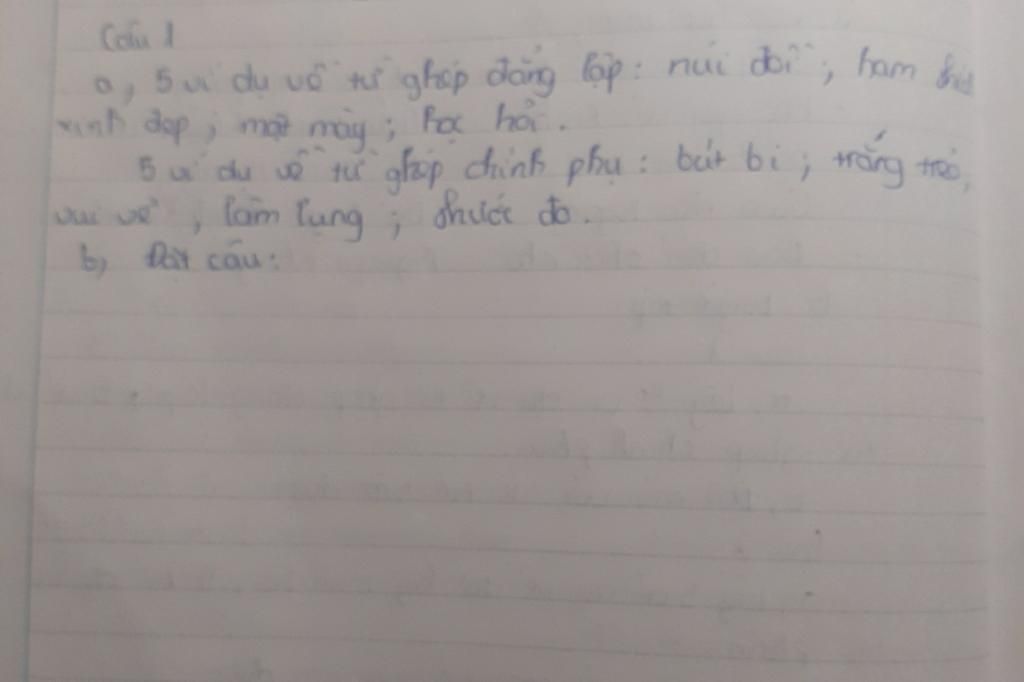 Câu 1
a, 5 ví dụ về từ ghép đẳng lập: núi đồi; ham thích
xinh đẹp; mặt mày; học hỏi.
5 ví dụ về từ ghép chính phụ: bút bi; trắng trẻo,
vui vẻ, làm lụng; thước đo.
b, Đặt câu: